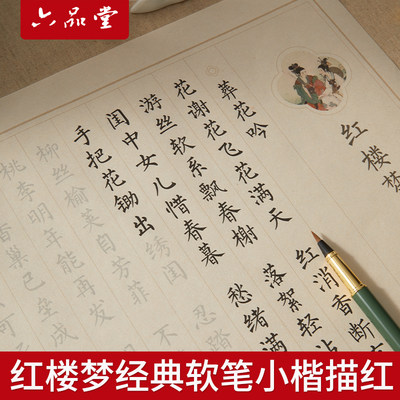 六品堂
红楼梦
葬花吟
花谢花飞花满天
红消香断
游丝软系飘春榭
落絮轻沾
闺中女儿惜春暮
愁绪满
手把花锄出
绣闺
忍踏
柳丝榆荚自芳菲
不
桃李明年能再发
红楼梦经典软笔小楷描红